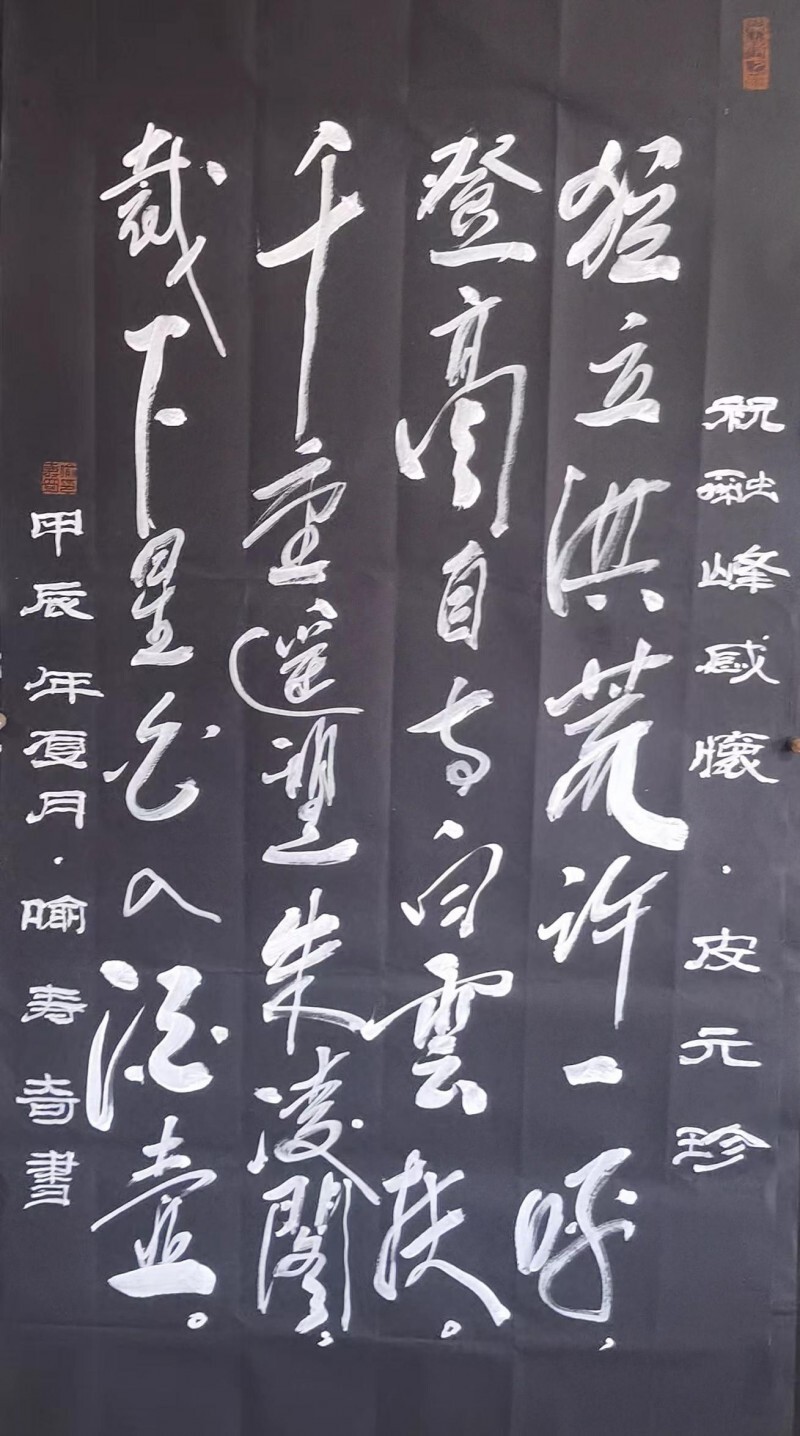 祝融峰感懷·皮元珍
獨立洪荒許一呼，
登高自有白雲扶。
千重遥望朱凌閣，
裁下星光入酒壺。
甲辰年夏月·喻寿奇書